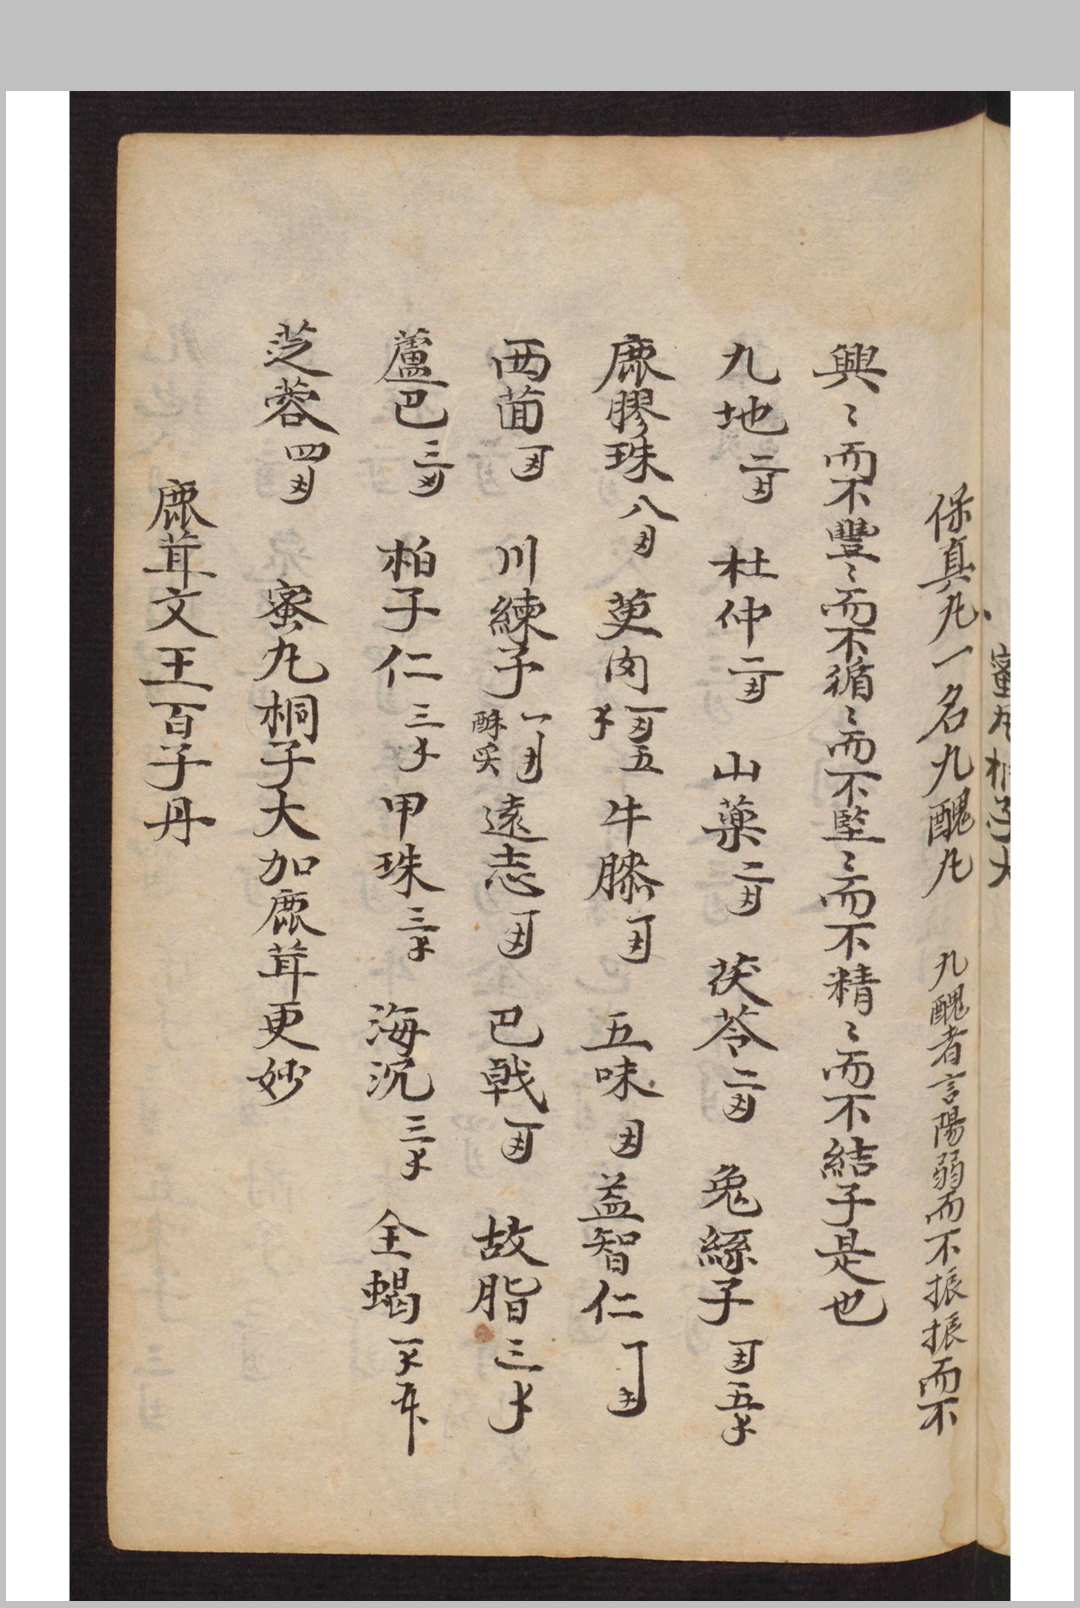 蜜丸桐子大
保真丸一名九醜丸 九醜者言陽弱而不振振而不
興〻而不豐〻而不循〻而不堅〻而不精〻而不結子是也
九地二両 杜仲二両 山藥二両 茯苓二両 兔絲子一両五錢
鹿膠珠八両 萸肉一両五錢 牛膝一両 五味一両 益智仁一両
西茴一両 川練子一両酥炙 遠志一両 巴戟一両 故脂三錢
蘆巴三両 柏子仁三錢 甲珠三錢 海沉三錢 全蝎一錢五分
芝蓉四両 蜜丸桐子大加鹿茸更妙
鹿茸文王百子丹